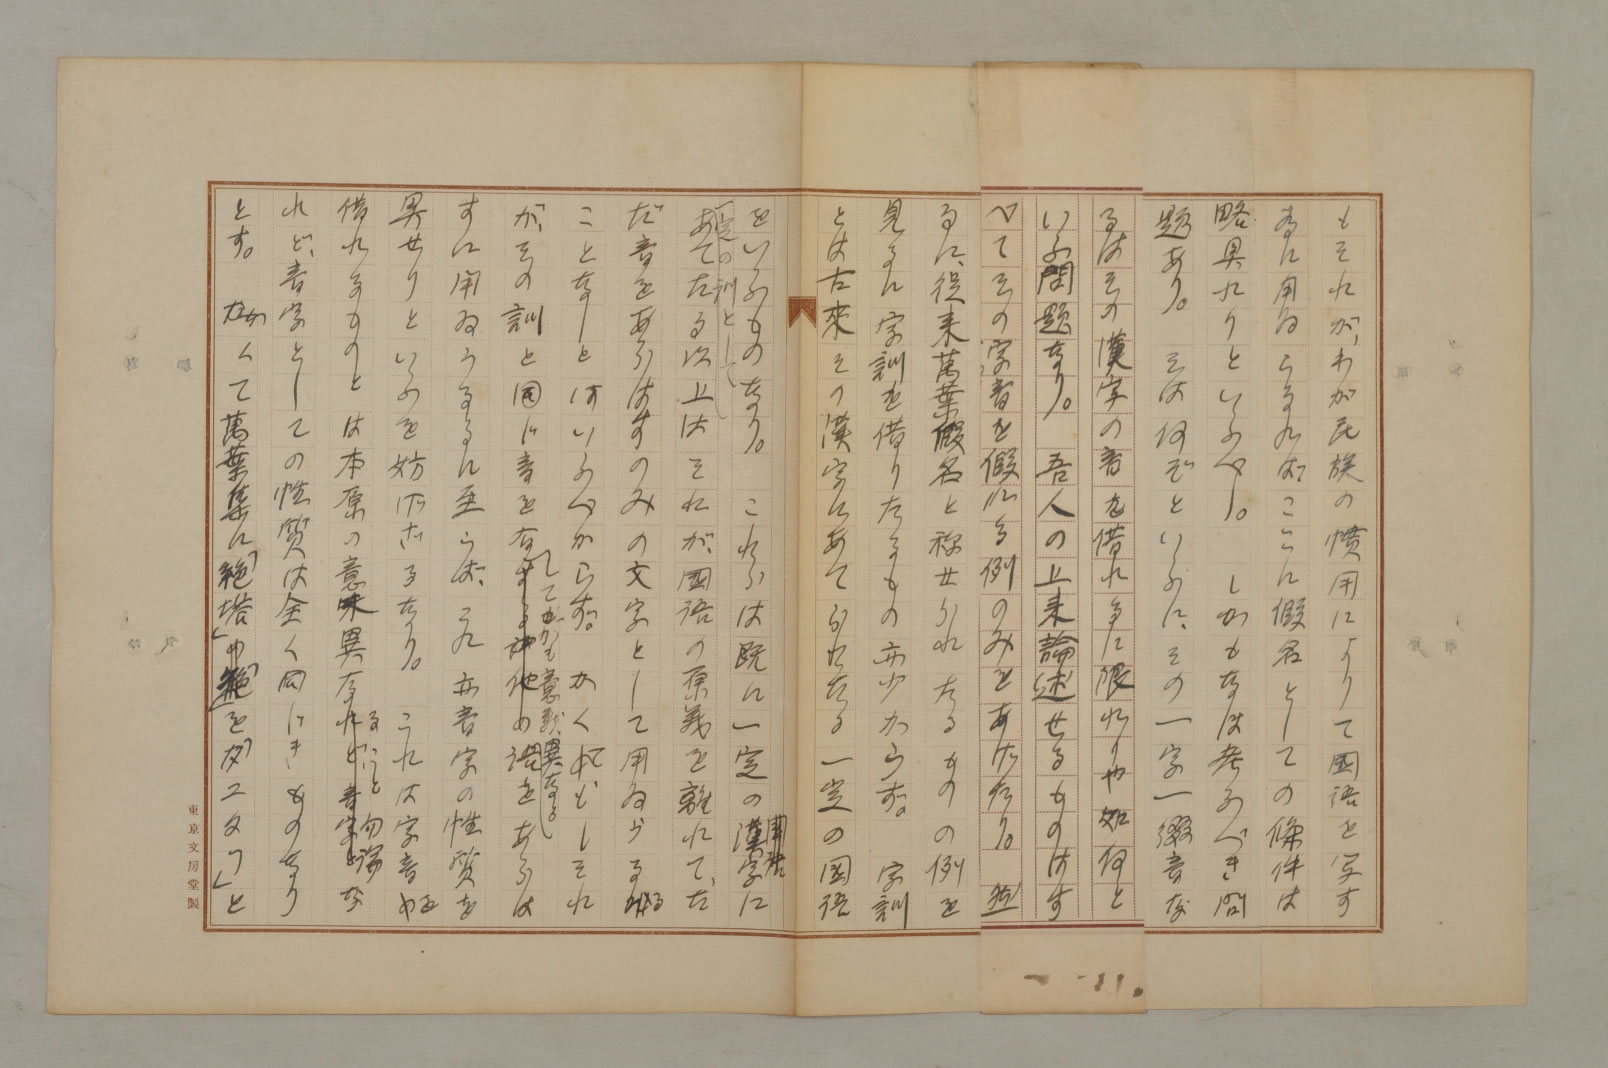 もそれが、わが民族の慣用によりて國語を写す
為に用ゐらるればここに假名としての條件は
略具れりといふべし。しかもなほ考ふべき問
題あり。そは何ぞといふに、その一字一綴音な
るはその漢字の音を借れるに限れりや如何と
いふ問題なり。吾人の上来論述せるものはす
べてその字音を假れる例のみをあげたり。然
るに、従来萬葉假名と称せられたるものの例を
見るに字訓を借りたるもの亦少からず。字訓
とは古來その漢字にあてられたる一定の國語
をいふものなり。これらは既に一定の漢字に
國語
一定の訓として
あてたる以上はそれが、國語の原義を離れて、た
だ音をあらはすのみの文字として用ゐらるる
が、その訓と同じ音を有
してしかも意義異なる
他の語をあらは
ことなしとはいふべからず。かくもしそれ
すに用ゐらるるに至らば、これ亦音字の性質を
具せりといふを妨げざるなり。これは字音を
借れるものとは本原の意味異なる
こと勿論な
れど、音字としての性質は全く同じきものなり
とす。かくて萬葉集に「絶塔」の「絶」を「タユタフ」と
東京文房堂製